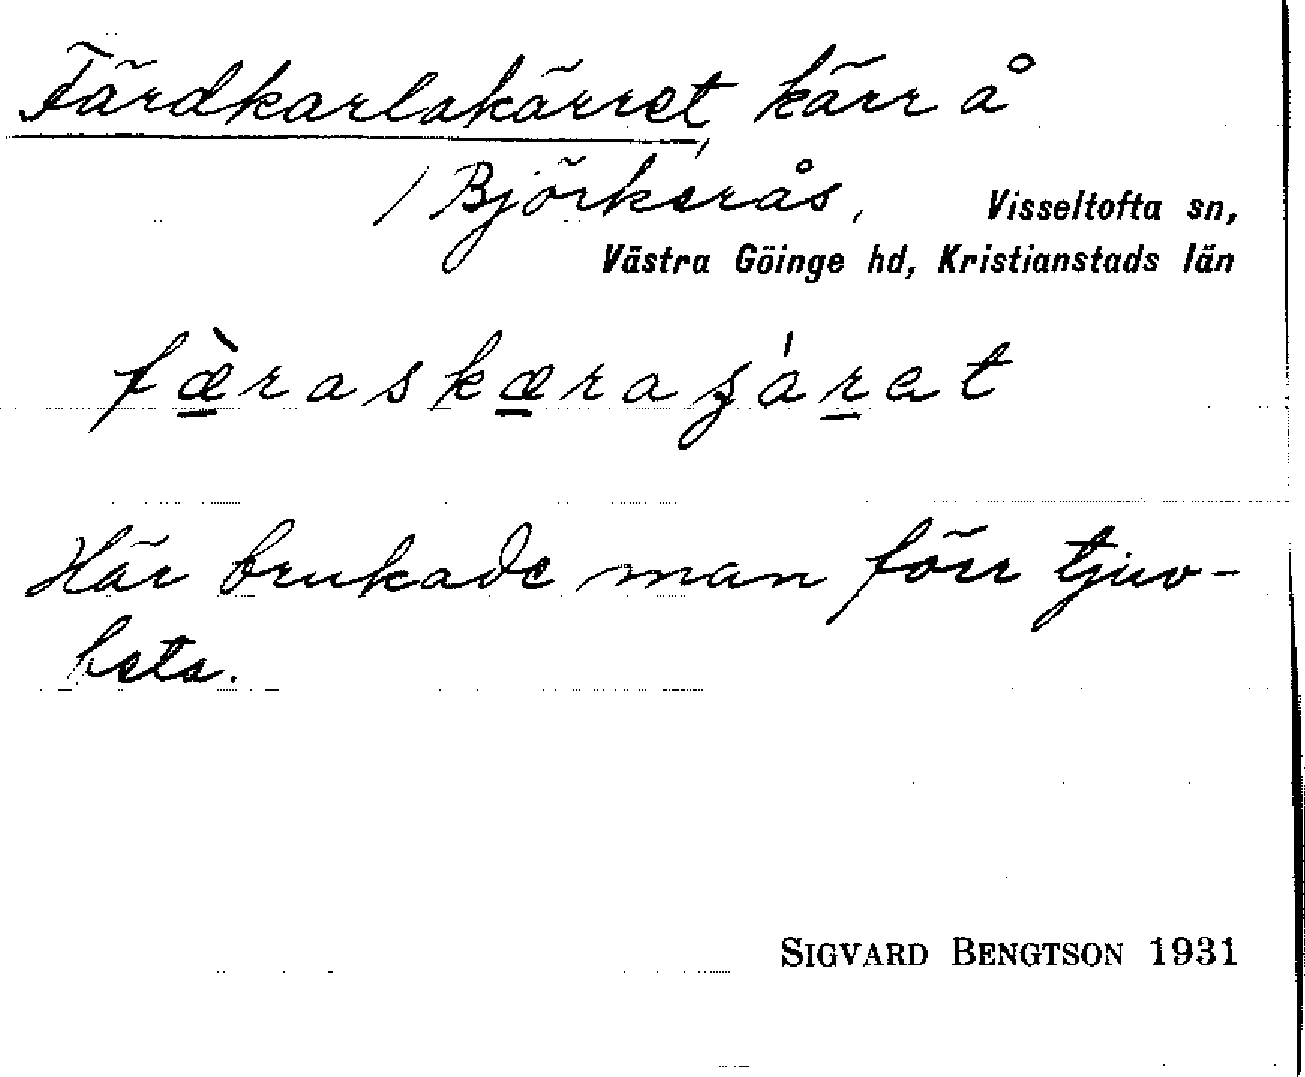 Färdkarlakärret kärr å
/ Björkerås, Visseltofta sn,
Västra Göinge hd, Kristianstads län
fæ̀raskæraʒáret
Här brukade man förr tjuv-
beta.
SIGVARD BENGTSON 1931